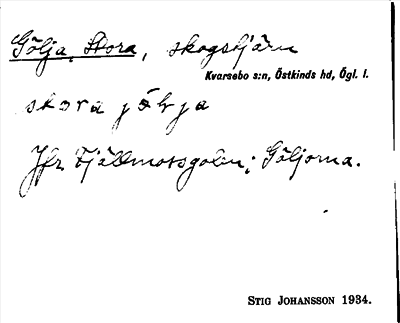 Gölja, Stora, skogstjärn
Kvarsebo s:n, Östkinds hd, Ögl. l.
stora jölja
Jfr Fjällmossgolen; Göljorna.
STIG JOHANSSON 1934.